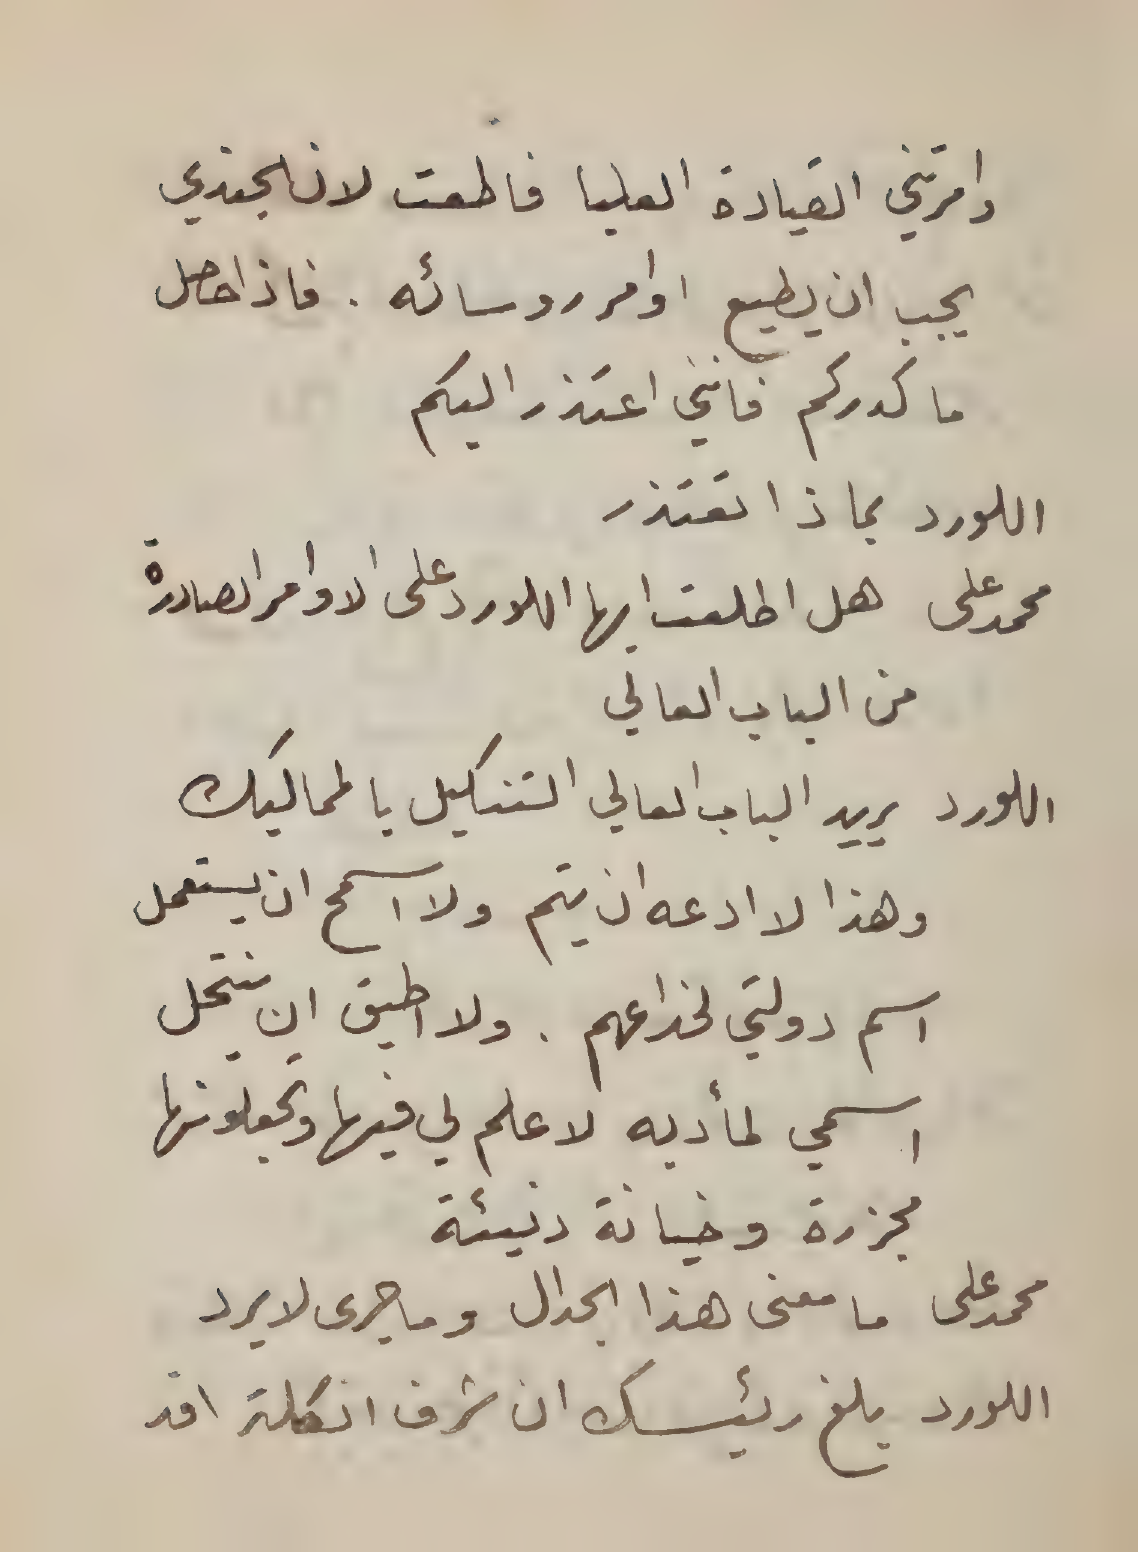 وامرتني القيادة العليا فاطعت لان الجندي
يجب ان يطيع اوامر روسائه . فاذا حصل
ما كدركم فانني اعتذر اليكم
اللورد بماذا تعتذر
محمد على هل اطلعت ايها اللورد على الاوامر الصادرة
من الباب العالي
اللورد يريد الباب العالي التنكيل بالمماليك
وهذا لا ادعه ان يتم ولا اسمح ان يستعمل
اسم دولتي لخداعهم . ولا اطيق ان ينتحل
اسمي لمأدبه لا علم لي فيها وتجعلونها
مجزرة وخيانة دنيئة
محمد على ما معنى هذا الجدال وما جرى لا يرد
اللورد بلغ رئيسك ان شرف انكلترا قد